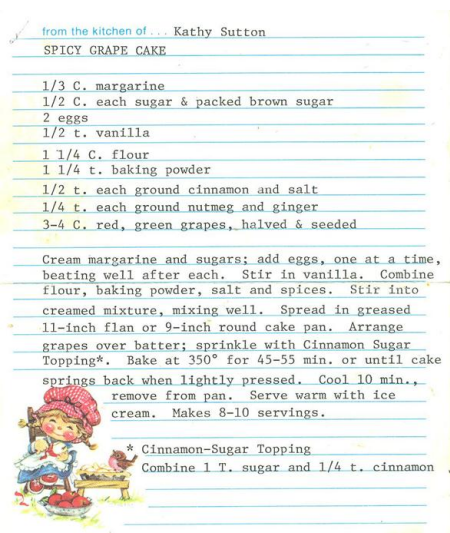 from the kitchen of ... Kathy Sutton
SPICY GRAPE CAKE
1/3 C. margarine
1/2 C. each sugar & packed brown sugar
2 eggs
1/2 t. vanilla
1 1/4 C. flour
1 1/4 t. baking powder
1/2 t. each ground cinnamon and salt
1/4 t. each ground nutmeg and ginger
3-4 C. red, green grapes, halved & seeded
Cream margarine and sugars; add eggs, one at a time,
beating well after each. Stir in vanilla. Combine
flour, baking powder, salt and spices. Stir into
creamed mixture, mixing well. Spread in greased
11-inch flan or 9-inch round cake pan. Arrange
grapes over batter; sprinkle with Cinnamon Sugar
Topping*. Bake at 350° for 45-55 min. or until cake
springs back when lightly pressed. Cool 10 min.,
remove from pan. Serve warm with ice
cream. Makes 8-10 servings.
* Cinnamon-Sugar Topping
Combine 1 T. sugar and 1/4 t. cinnamon